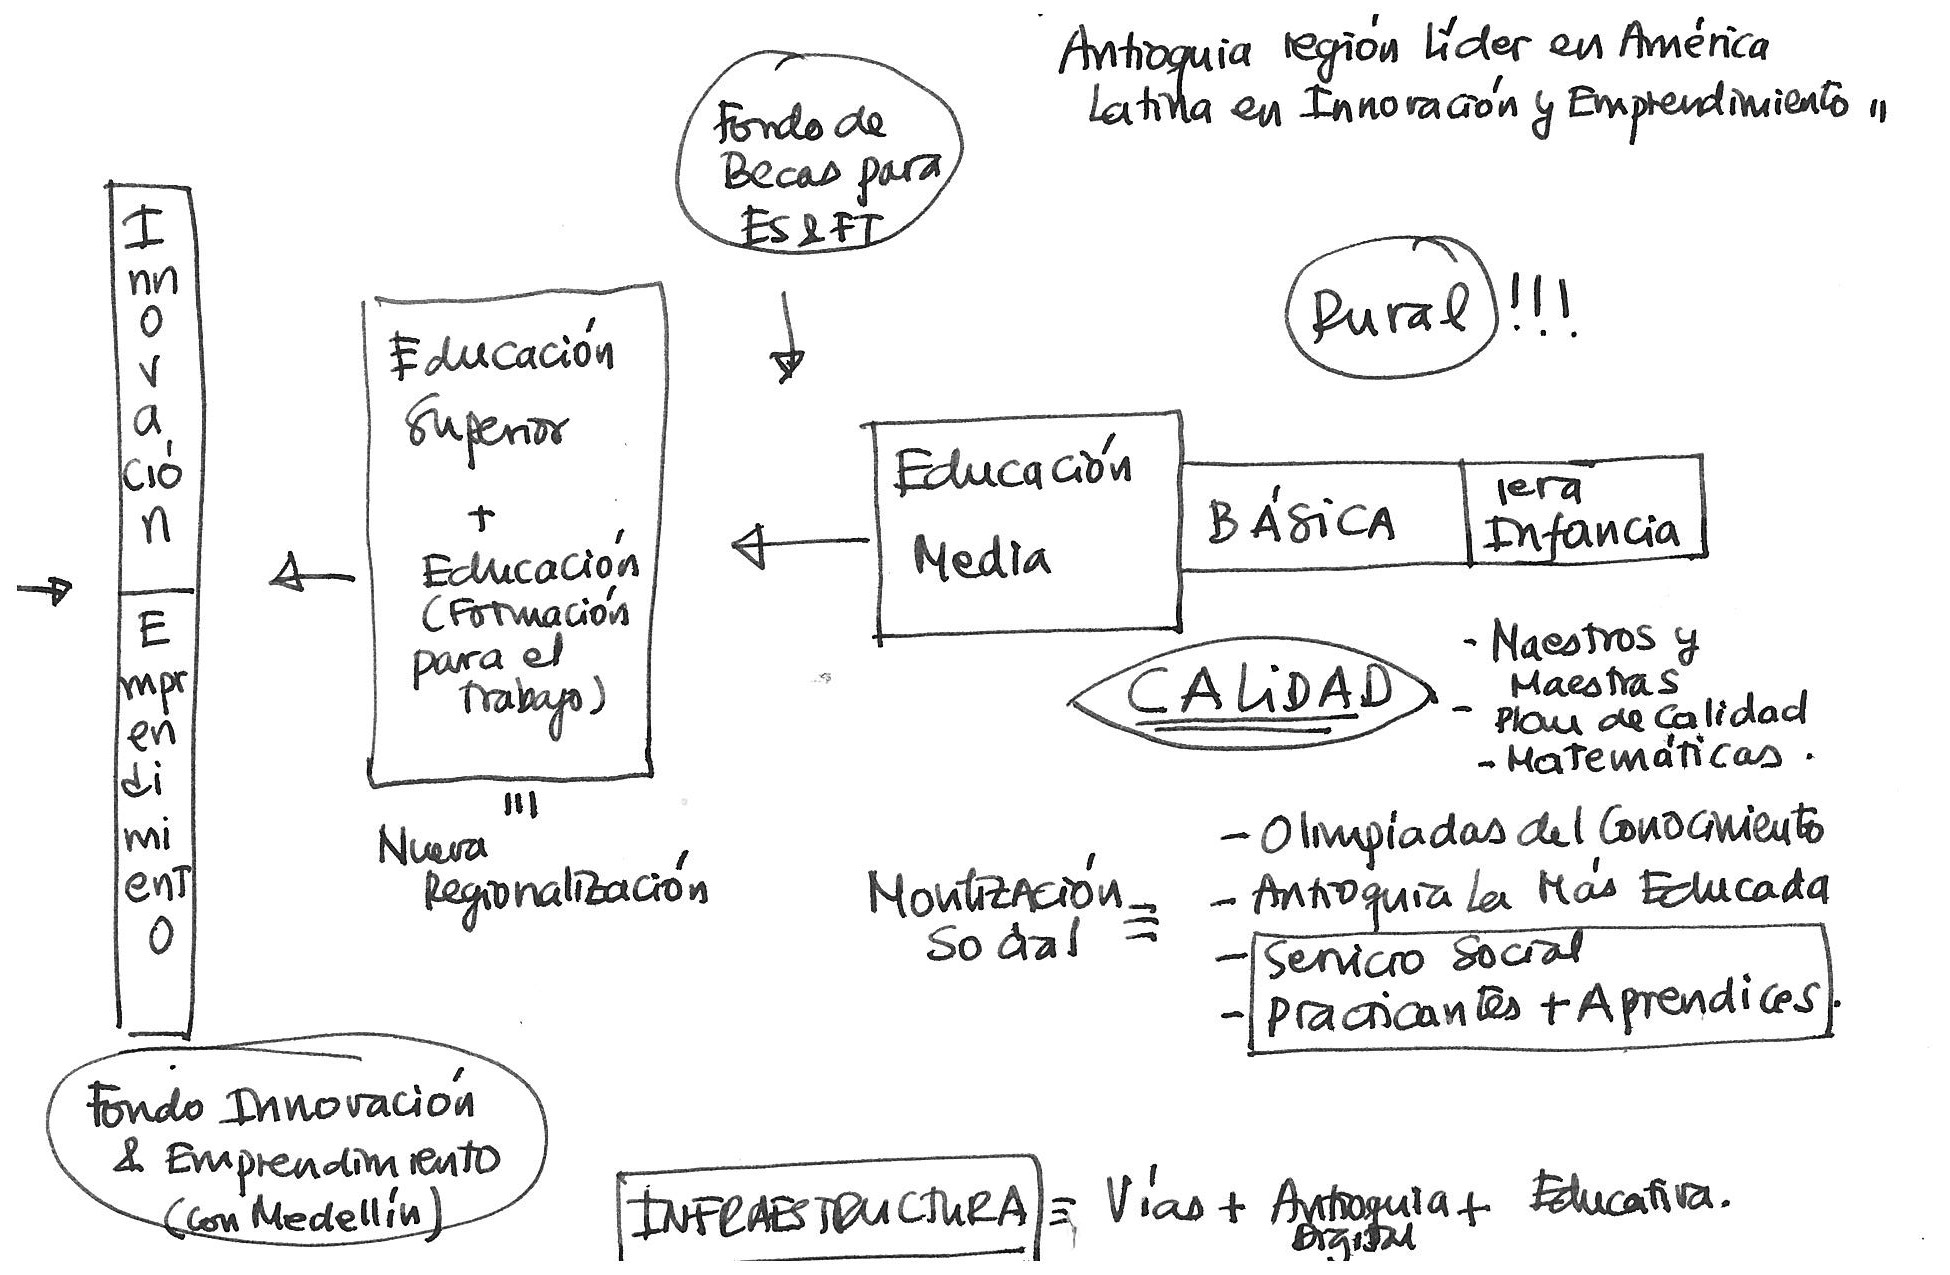 Antioquia región líder en América
Latina en Innovación y Emprendimiento "
Fondo de
Becas para
ES & FT
Rural !!!
I
nn
o
v
a
ció
n
E
mpr
en
di
mi
ent
o
Educación
Superior
+
Educación
(Formación
para el
trabajo)
Nueva
Regionalización
Educación
Media
BÁSICA
1era
Infancia
CALIDAD
- Maestros y
Maestras
- Plan de Calidad
- Matemáticas.
Movilización
Social
- Olimpíadas del Conocimiento
- Antioquia la Más Educada
- Servicio Social
- Practicantes + Aprendices.
Fondo Innovación
& Emprendimiento
(con Medellín)
INFRAESTRUCTURA ≡ Vías + Antioquia + Educativa.
Digital